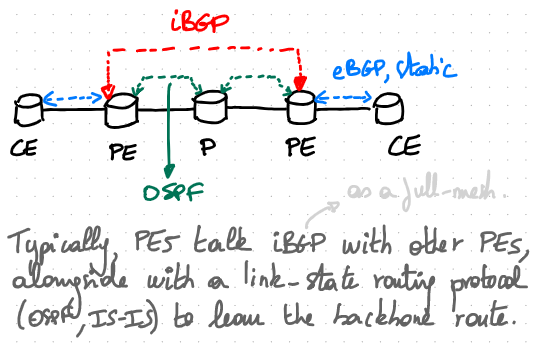 iBGP
eBGP, static
CE PE P PE CE
OSPF
as a full-mesh.
Typically, PEs talk iBGP with other PEs,
alongside with a link-state routing protocol
(OSPF, IS-IS) to learn the backbone route.